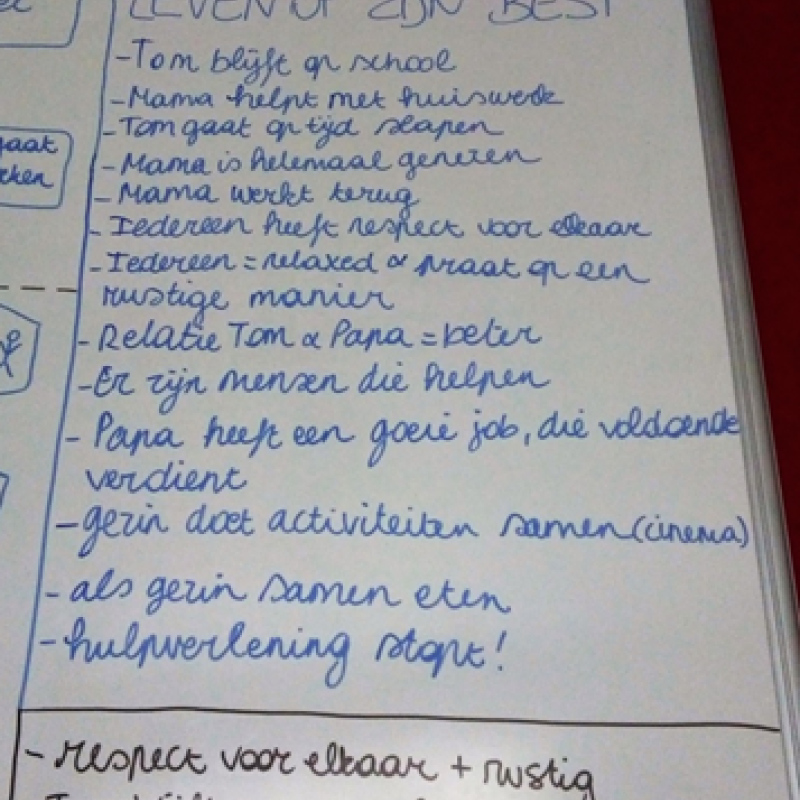 LEVEN OP ZIJN BEST
-Tom blijft op school
-Mama helpt met huiswerk
-Tom gaat op tijd slapen
gaat
-Mama is helemaal genezen
-Mama werkt terug
- Iedereen heeft respect voor elkaar
- Iedereen = relaxed & praat op een
rustige manier
- Relatie Tom & Papa = beter
-Er zijn mensen die helpen
- Papa heeft een goeie job, die voldoende
verdient
-gezin doet activiteiten samen (cinema)
- als gezin samen eten
-hulpverlening stopt!
- respect voor elkaar + rustig